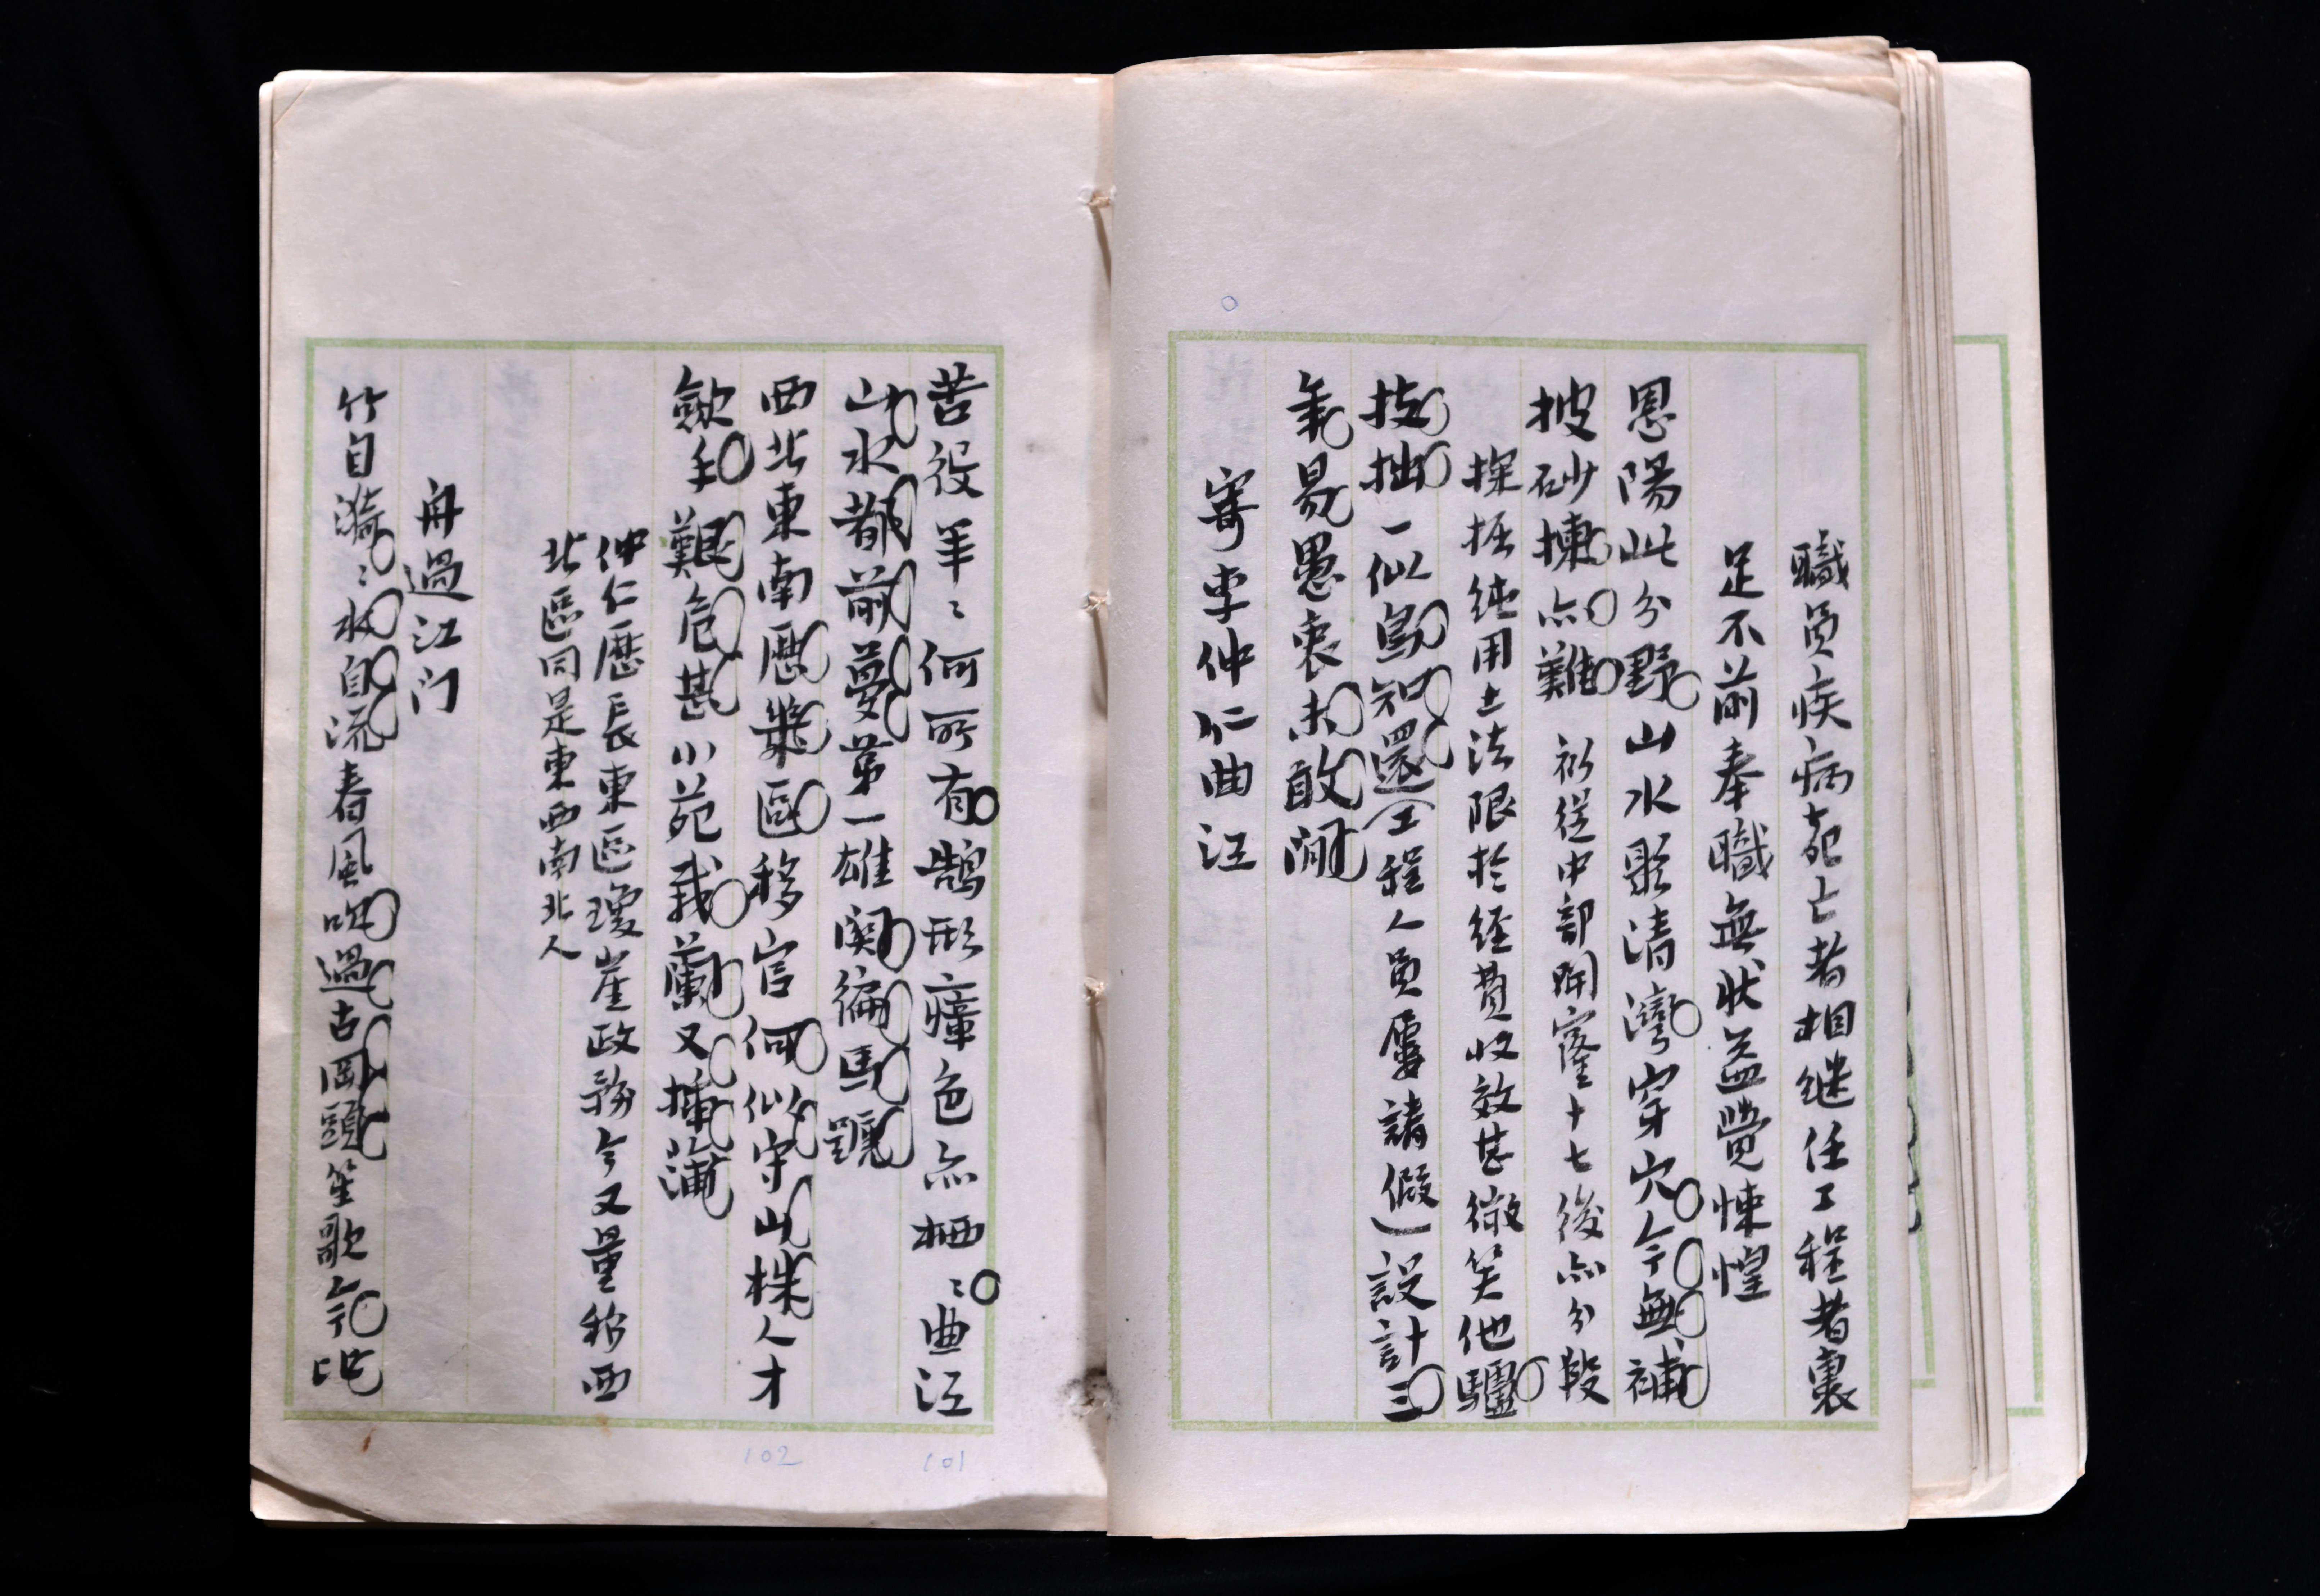 職員疾病死亡者相継任工程者裹
足不前奉職無状益覺悚惶
恩陽此分野山水聚清灣穿穴今無補
披砂揀亦難 初從中部開窿十七後亦分段
採掘純用土法限於經費收效甚微笑他驢
技拙一似鳥知還(工程人員屢請假)設計三
年易愚衷未敢閒
寄李仲仁曲江
苦役年〻何所有鵠形瘴色亦栖〻曲江
山水都前夢第一雄關徧馬蹏
西北東南歷幾區移官何似守山株人才
歉手艱危甚小苑栽蘭又插蒲
仲仁歷長東區瓊崖政務今又量移西
北區同是東西南北人
舟過江门
竹自漪〻水自流春風吹過古岡頭笙歌今
101
102